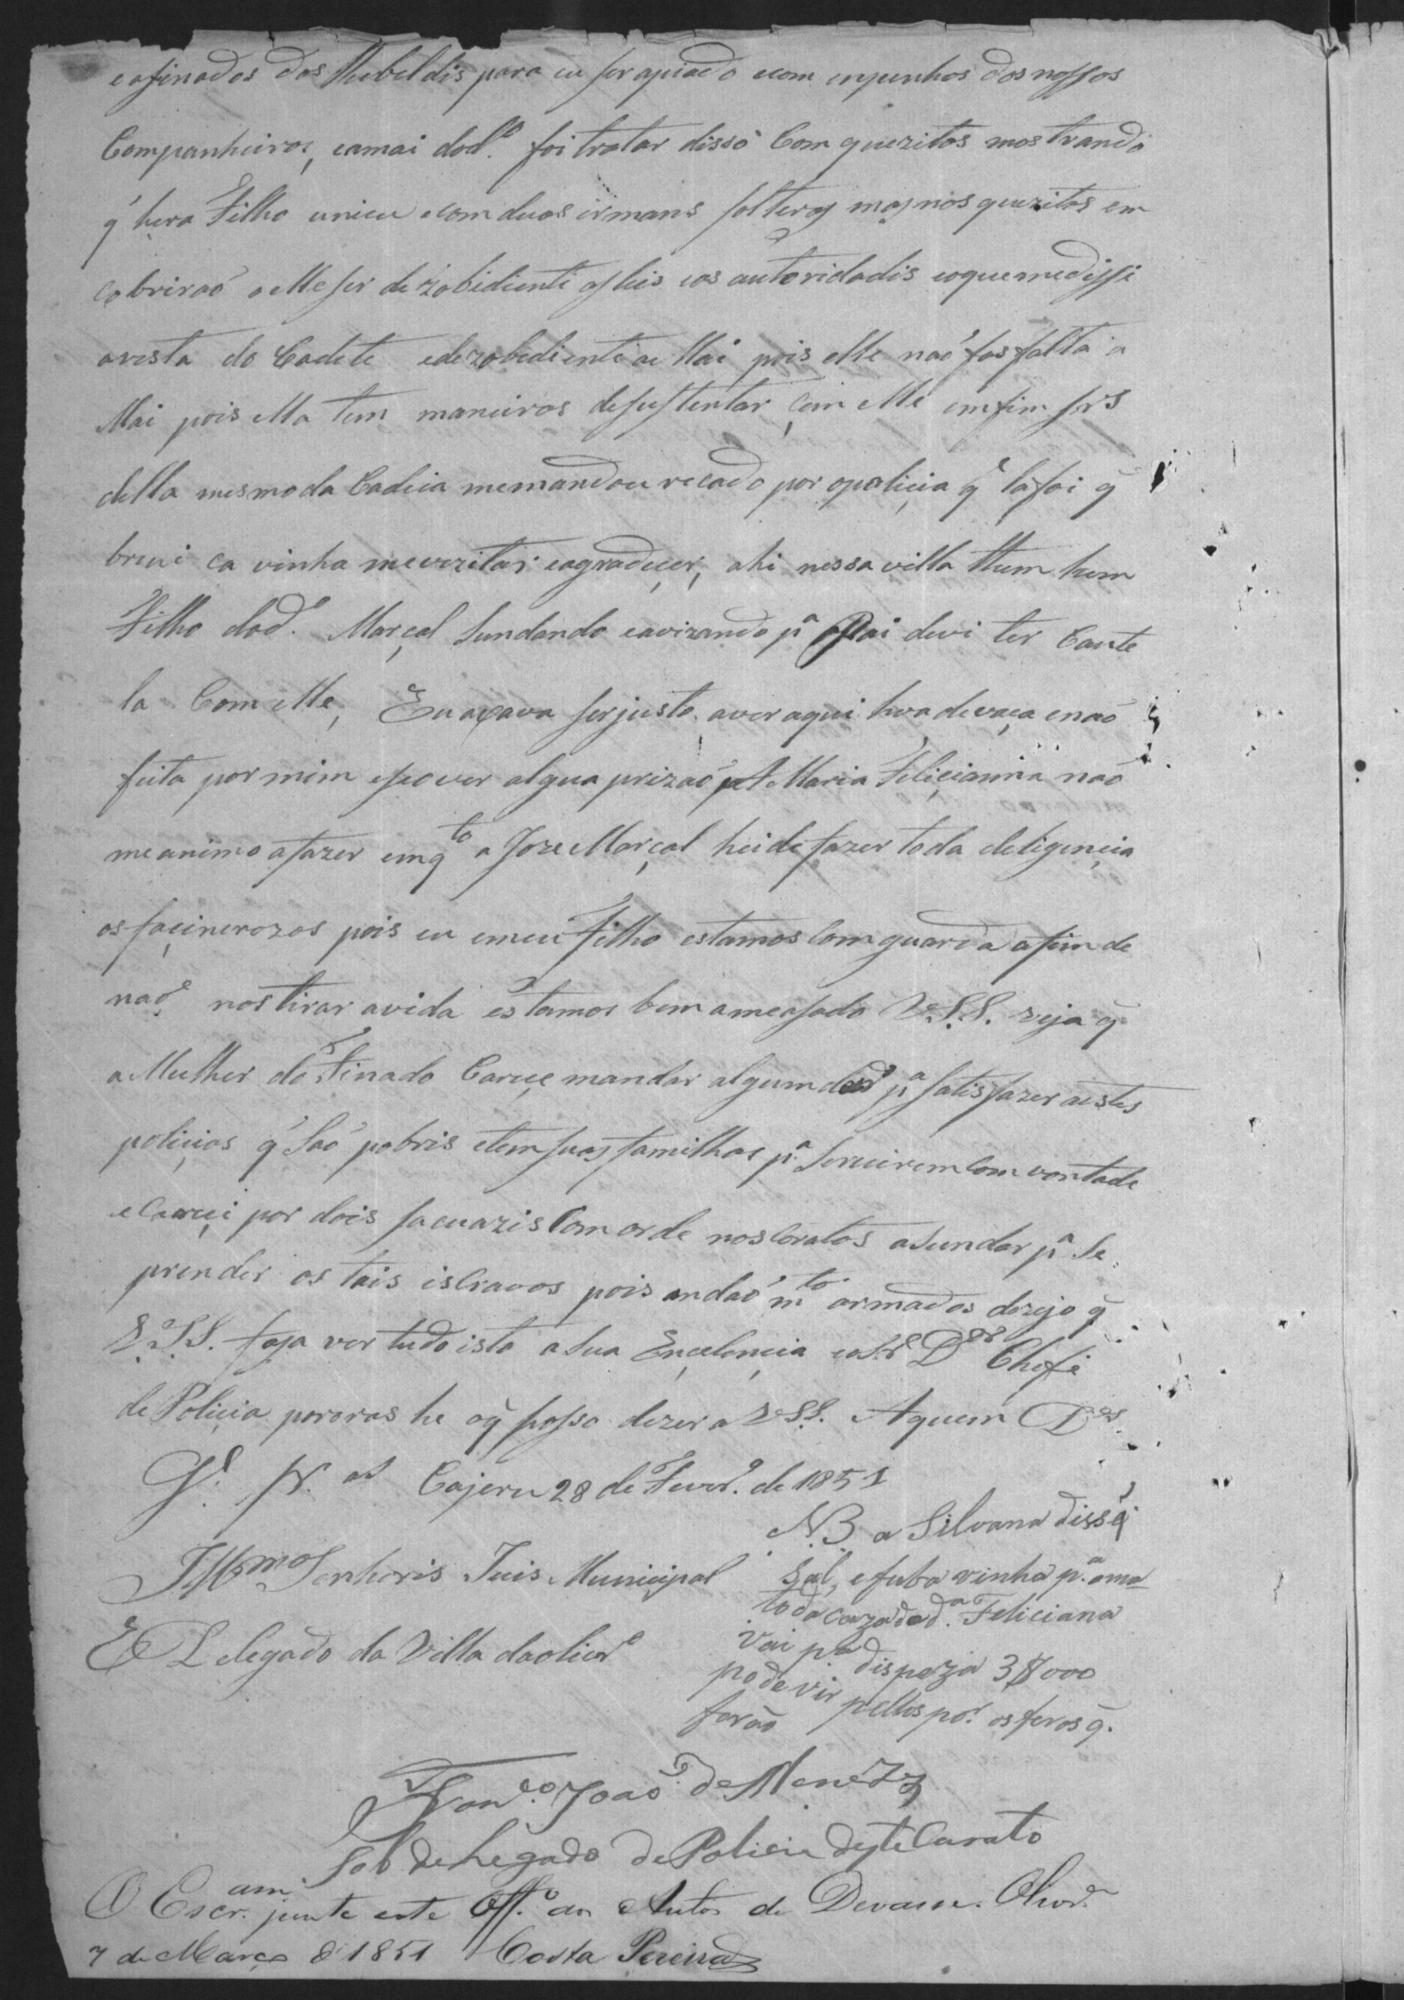 eafinados dos Rebeldis para eu ser apiado e com enpenhos dos nossos
Companheiros, eamai dod.º foi tratar disso Com quezitos mostrando
q̃ hera Filho unicu e com duas irmans solteras mas nos quezitos em
cobriraõ aelle ser dezobidiente as leis e as autoridadis eoque me disse
avista do Cadete e dezobediente ae Mai pois elle naõ fas falta a
Mai pois ella tem maneiras de sustentar çem elle emfim frs
della mesmo da Cadeia me mandou recado por opoliçia q̃ la foi q̃
brevi ca vinha me vezitar e agradeçer, ahi nessa villa them hum
Filho dod.º Marçal Sundando e avizando p.ª o Pai devi ter Caute
la Com elle, Eu açava ser justo aver aqui hũa devaça e naõ
feita por mim e se over algua prizaõ p.ª A Maria Feliçianna naõ
me animo afazer emq.to a Joze Marçal hei de fazer toda deligençia
os façinerozos pois eu emeu Filho estamos Com guarda afim de
naõ nos tirar avida estamos bem ameasado V.S.S. veja q̃
a Mulher do Finado Careçe mandar algum p.ª satisfazer aestes
poliçias q̃ Saõ pobris etem suas familhas p.ª servirem Com vontade
e Careçi por dois Com orde nos Coratos aSundar p.ª Se
prender os tais iscravos pois andaõ m.to armados dezejo q̃
V.S.S. faça ver tudo isto a Sua Ençelençia eosr D.or Chefe
de Policia por oras he oq̃ posso dezer a V.S.S. Aquem D.os
G.e m.s a.s Cajuru 28 de Fever.º de 1851
N.B. a Silvana disse q̃
Sal, e fuba vinha p.ª ama
toda caza dad.ª Feliciana
Vai p.ª dispeza 3$000
pode vir pellos por os feros q̃
foraõ
Illmos Senhoris Juis Municipal
E Delegado da Villa daoliv.ª
Fran.co Joaõ de Menezes
Sob deLegado de Policia deste Curato
O Escr.am junte este Off.º aos Autos de Devassa. Oliv.ª
7 de Março d 1851 Costa Pereira